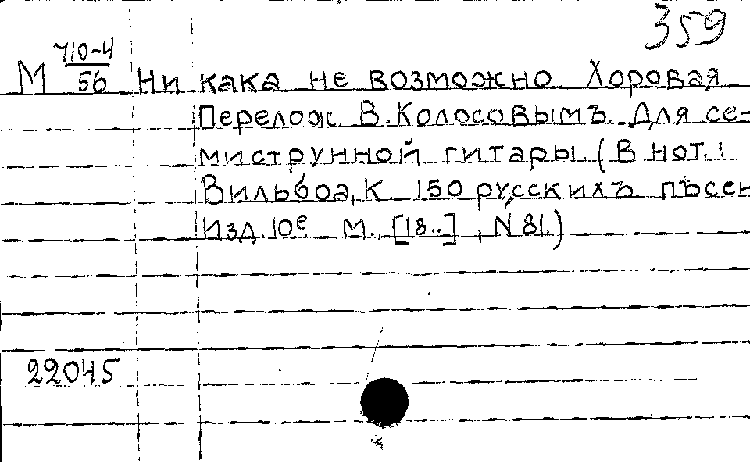 359
М 710-4/56 Ни кака не возможно. Хоровая
Перелож. В. Колосовымъ. Для се-
миструнной гитары. (В нот.:
Вильбоа, К 150 русскихъ пѣсен
Изд. 10е М. [18..], N 81.)
22045